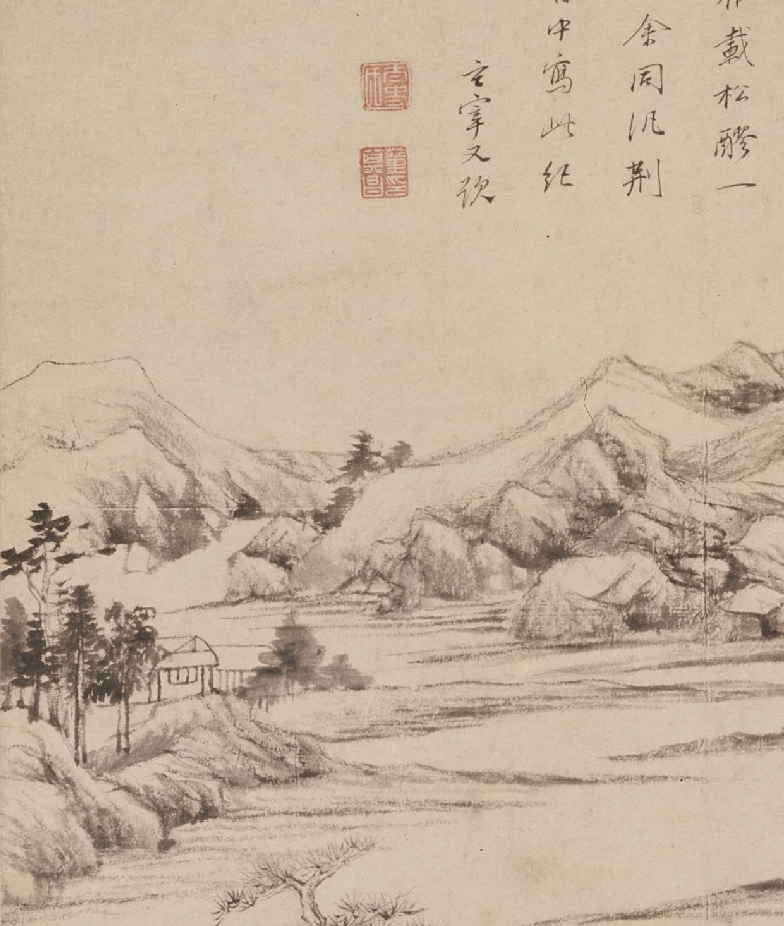 載松醪一
余同汎荊
中寫此紀
玄宰又題